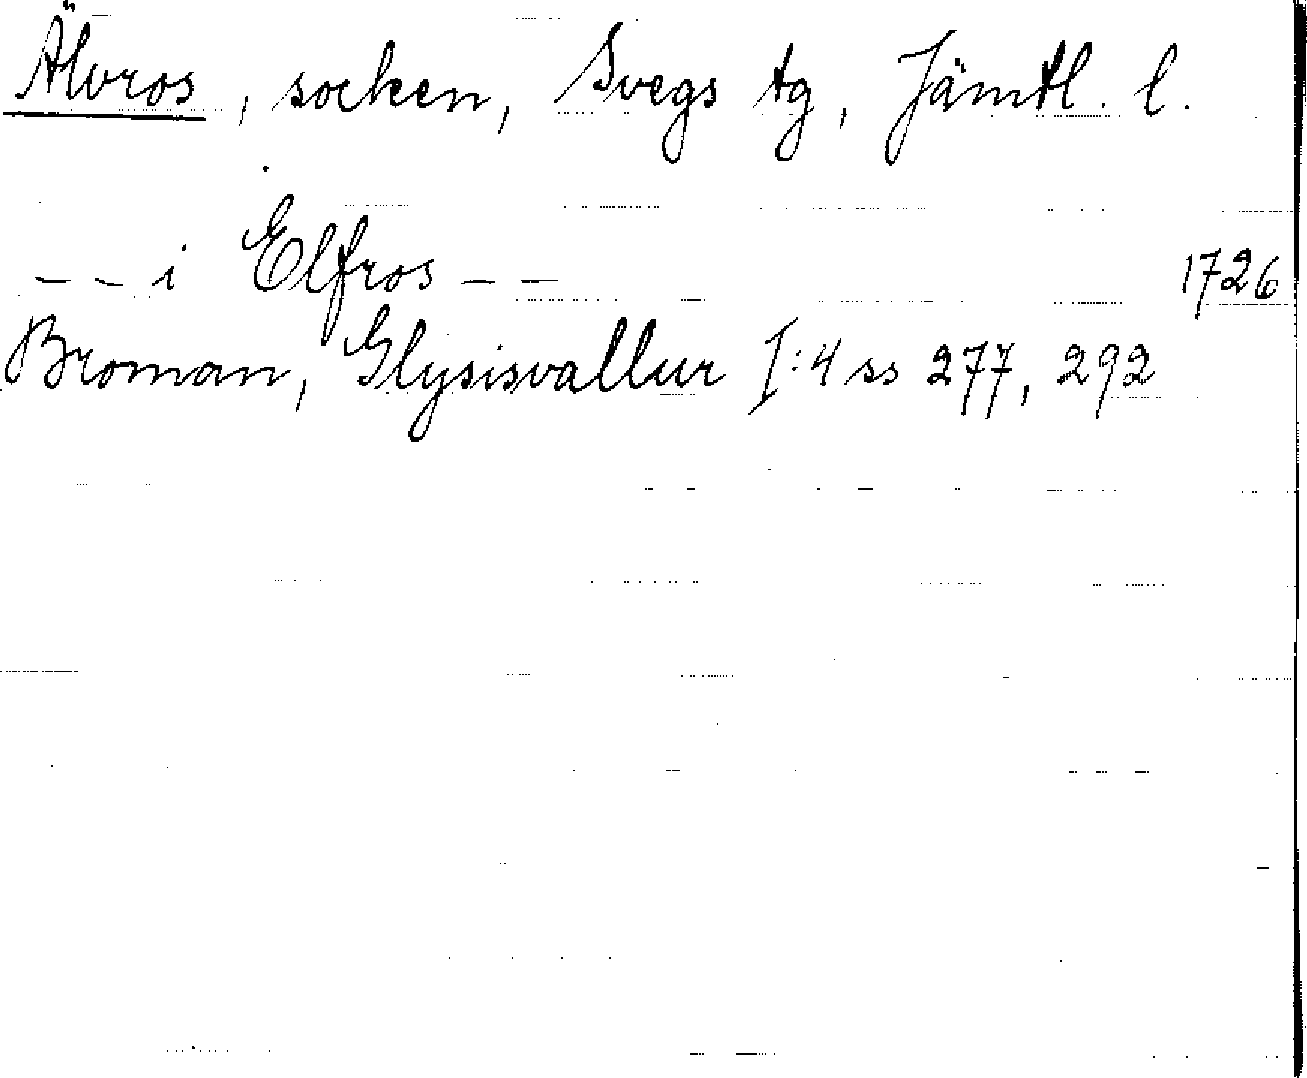 Älvros, socken, Svegs tg, Jämtl. l.
– – i Elfros – – 1726
Broman, Glysisvallur I:4 ss 277, 292